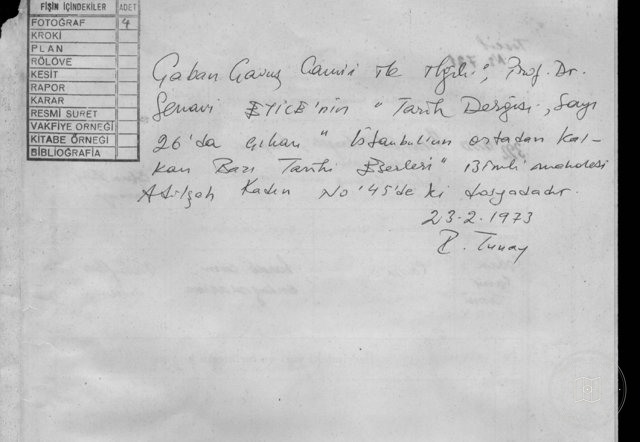 FİŞİN İÇİNDEKİLER ADET
FOTOĞRAF 4
KROKİ
PLAN
RÖLÖVE
KESİT
RAPOR
KARAR
RESMİ SURET
VAKFİYE ÖRNEĞİ
KİTABE ÖRNEĞİ
BİBLİOGRAFİA
Çavuş Camii ile ilgili, Prof. Dr.
Semavi EYİCE'nin "Tarih Dergisi, Sayı
26'da çıkan "İstanbul'un ortadan Kal-
kan Bazı Tarihi Eserleri" isimli makalesi
Kadın No '45'de ki dosyadadır.
23.2.1973
R. Tunay